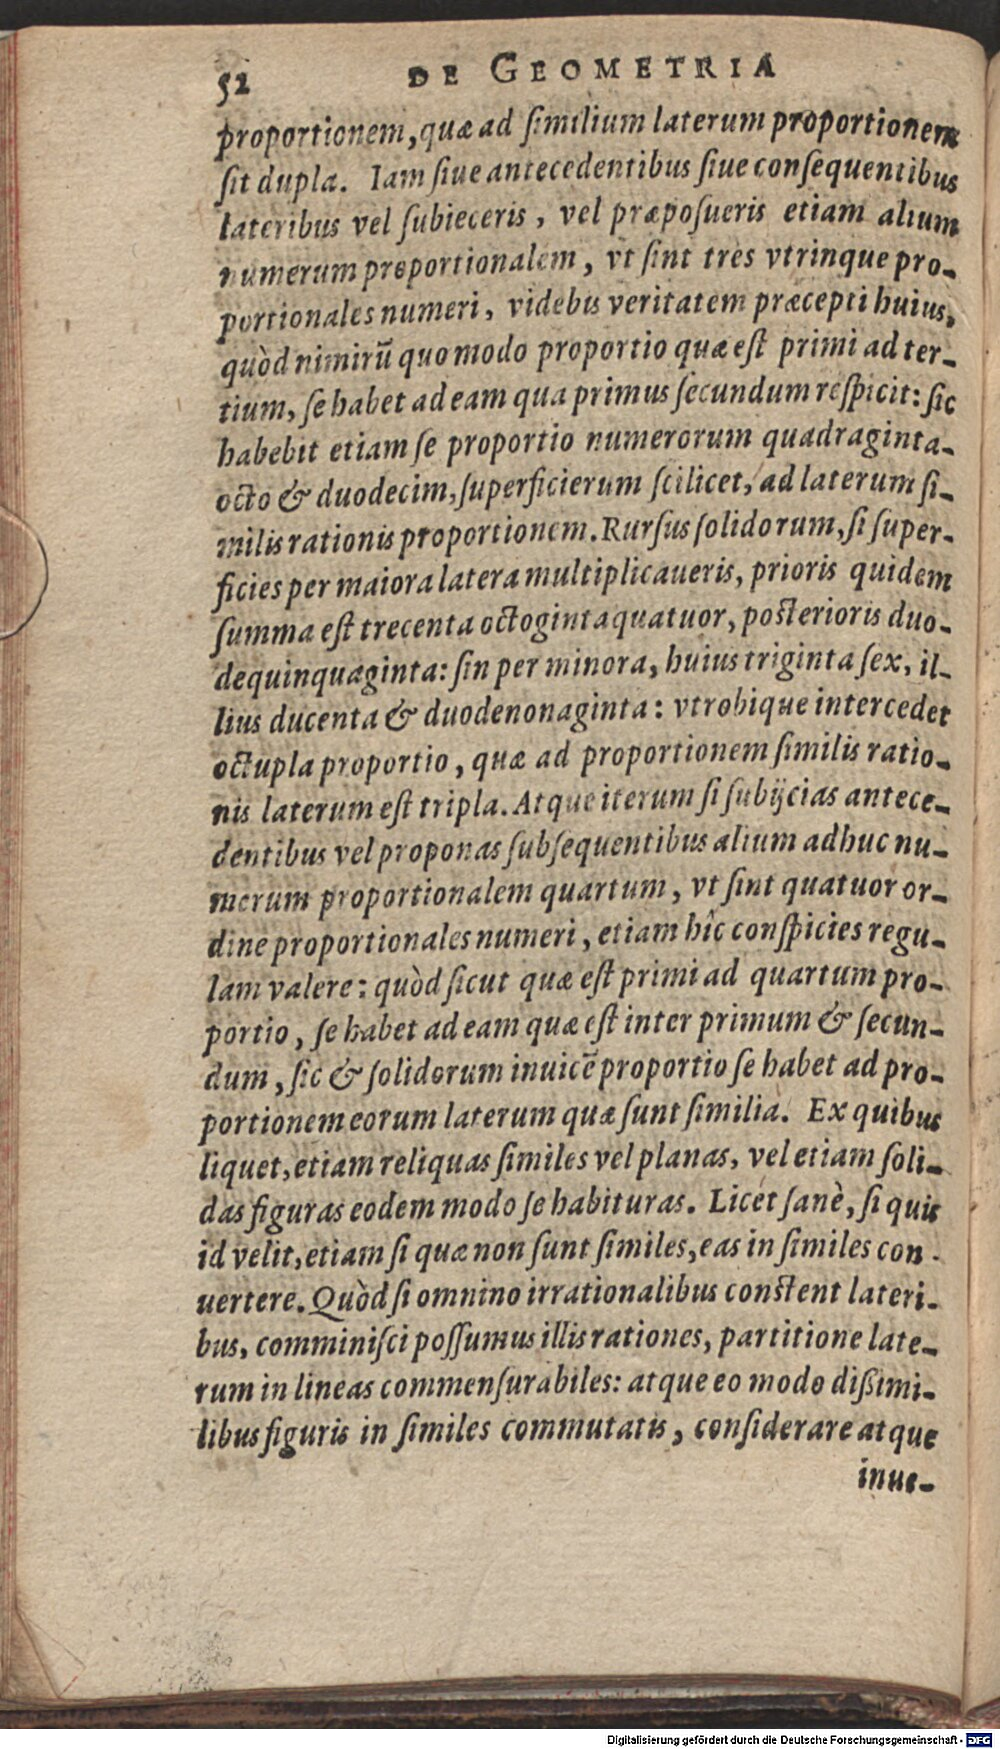 52 DE GEOMETRIA
proportionem, quæ ad ſimilium laterum proportionem
ſit dupla. Iam ſiue antecedentibus ſiue conſequentibus
lateribus vel ſubieceris, vel præpoſueris etiam alium
numerum proportionalem, vt ſint tres vtrinque pro-
portionales numeri, videbis veritatem præcepti huius,
quòd nimirũ quomodo proportio quæ eſt primi ad ter-
tium, ſe habet ad eam qua primus ſecundum reſpicit: ſic
habebit etiam ſe proportio numerorum quadraginta-
octo & duodecim, ſuperficierum ſcilicet, ad laterum ſi-
milis rationis proportionem. Rurſus ſolidorum, ſi ſuper-
ficies per maiora latera multiplicaueris, prioris quidem
ſumma eſt trecenta octoginta quatuor, poſterioris duo-
dequinquaginta: ſin per minora, huius triginta ſex, il-
lius ducenta & duodenonaginta: vtrobique intercedet
octupla proportio, quæ ad proportionem ſimilis ratio-
nis laterum eſt tripla. Atque iterum ſi ſubijcias antece-
dentibus vel proponas ſubſequentibus alium adhuc nu-
merum proportionalem quartum, vt ſint quatuor or-
dine proportionales numeri, etiam hîc conſpicies regu-
lam valere: quòd ſicut quæ eſt primi ad quartum pro-
portio, ſe habet ad eam quæ eſt inter primum & ſecun-
dum, ſic & ſolidorum inuicẽ proportio ſe habet ad pro-
portionem eorum laterum quæ ſunt ſimilia. Ex quibus
liquet, etiam reliquas ſimiles vel planas, vel etiam ſoli-
das figuras eodem modo ſe habituras. Licet ſanè, ſi quis
id velit, etiam ſi quæ non ſunt ſimiles, eas in ſimiles con-
uertere. Quòd ſi omnino irrationalibus conſtent lateri-
bus, comminiſci poſſumus illis rationes, partitione late-
rum in lineas commenſurabiles: atque eo modo diſsimi-
libus figuris in ſimiles commutatis, conſiderare atque
inue-
Digitalisierung gefördert durch die Deutsche Forschungsgemeinschaft - DFG